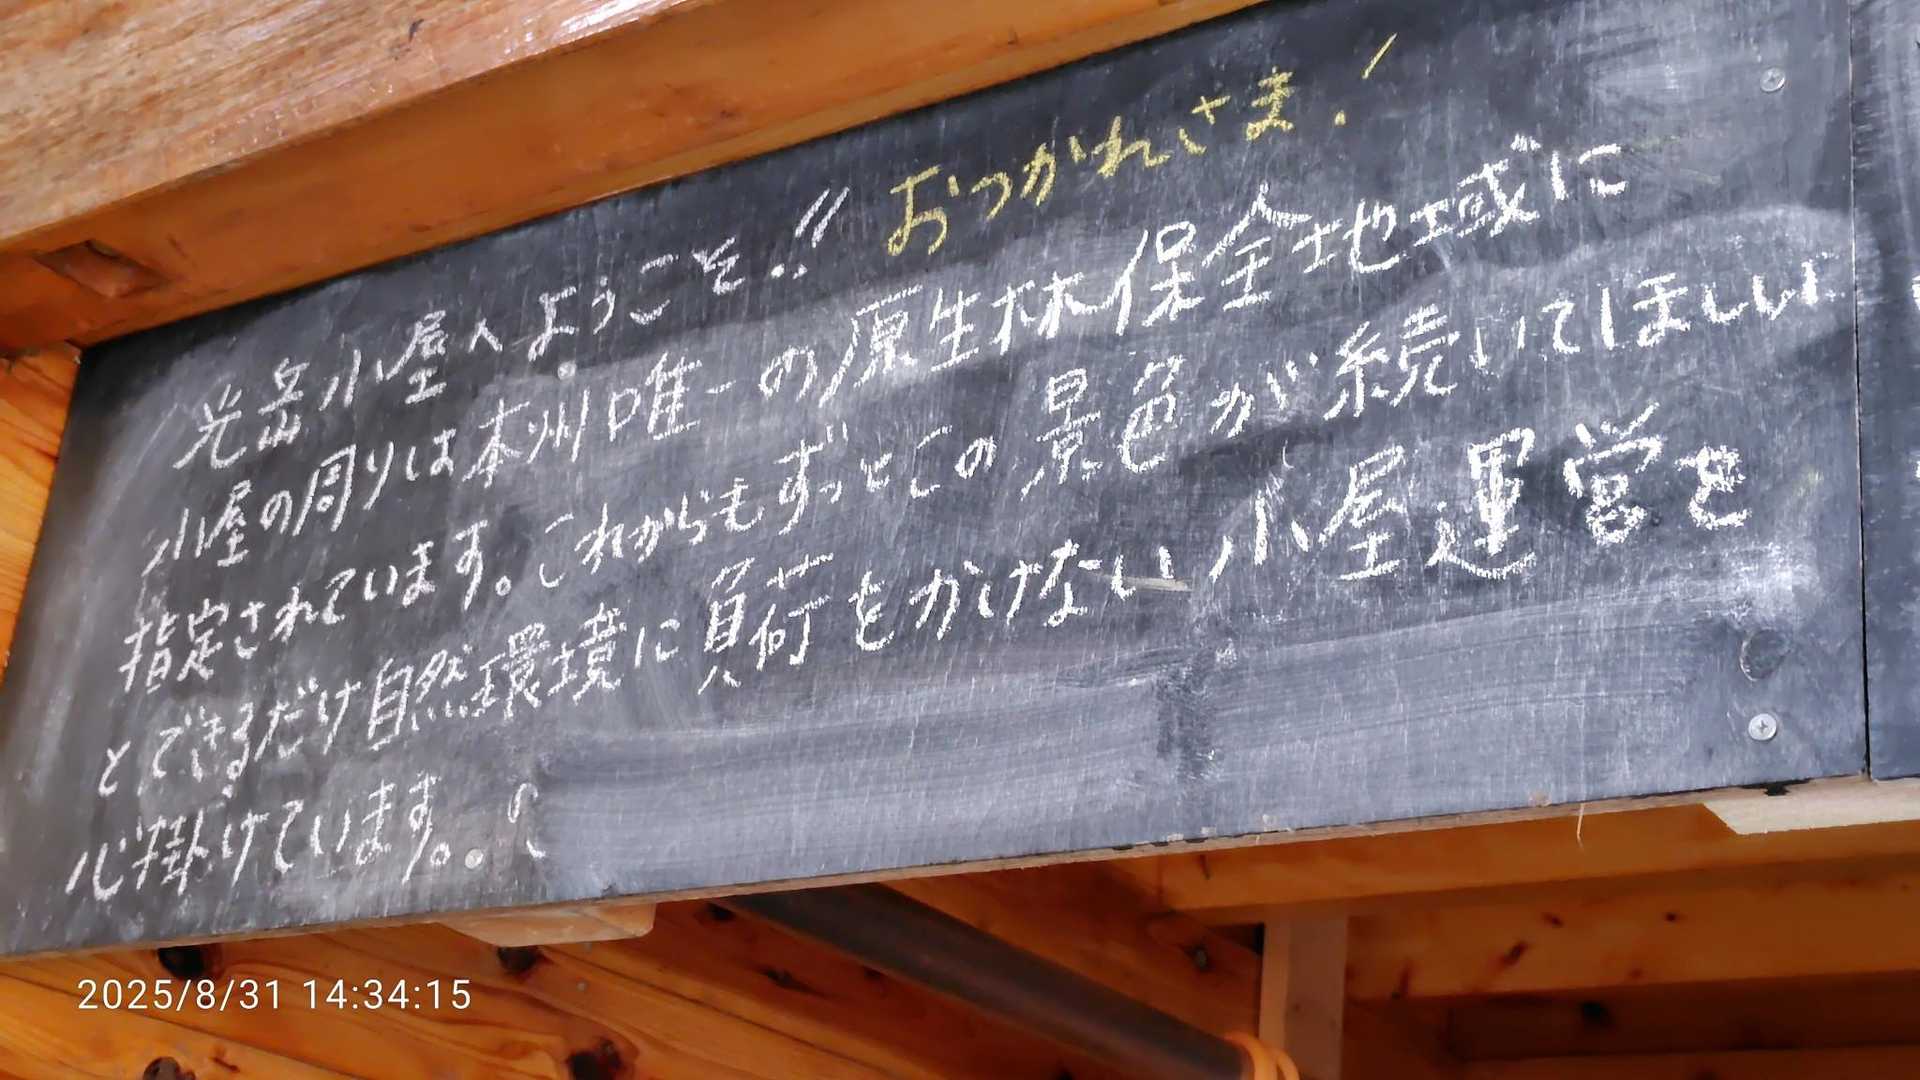 光岳小屋へようこそ!! おつかれさま!
小屋の周りは本州唯一の原生林保全地域に
指定されています。これからもずっとこの景色が続いてほしい
とできるだけ自然環境に負荷をかけない小屋運営を
心掛けています。
2025/8/31 14:34:15